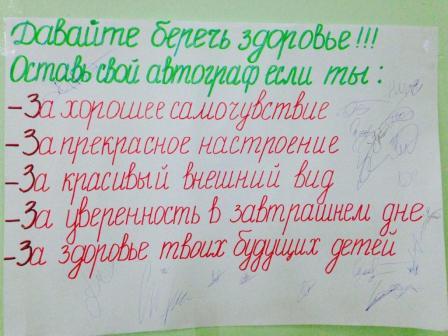 Давайте беречь здоровье!!!
Оставь свой автограф если ты:
-За хорошее самочувствие
-За прекрасное настроение
-За красивый внешний вид
-За уверенность в завтрашнем дне
-За здоровье твоих будущих детей